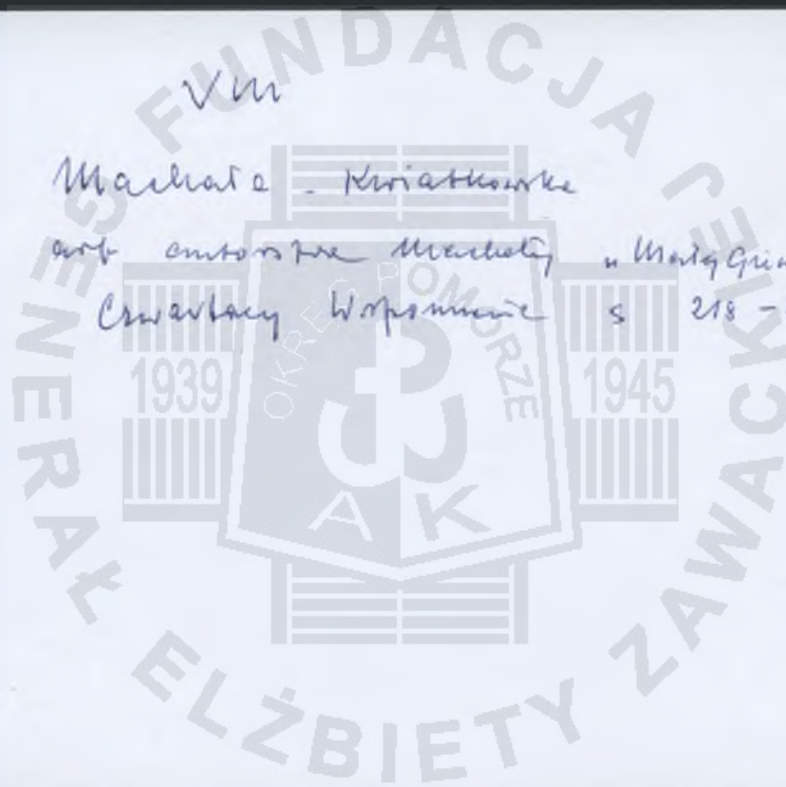 VIII
Machała - Kwiatkowska
art autorstwa Machały „Mały
Czwartacy Wspomnienie s 218 -
FUNDACJA
GENERAŁ ELŻBIETY ZAWACKIEJ
OKRĘG POMORZE
1939 1945
AK